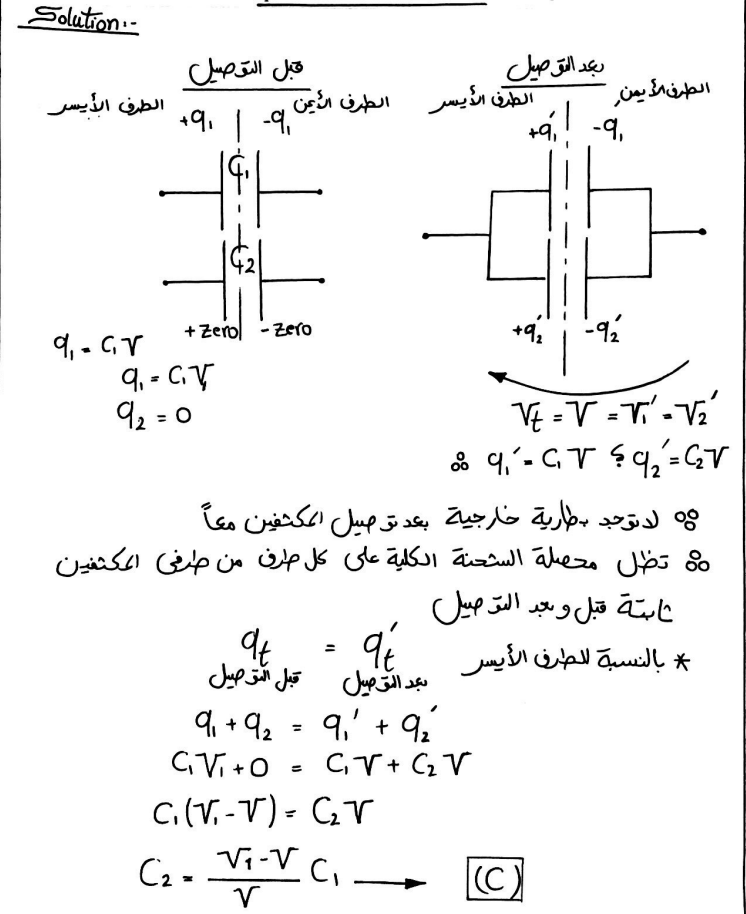 Solution:-
قبل التوصيل
الطرف الأيسر
الطرف الأيمن
+q₁ -q₁
C₁
C₂
+zero -zero
q₁ = C₁V
q₁ = C₁V₁
q₂ = 0
بعد التوصيل
الطرف الأيسر
الطرف الأيمن
+q₁′ -q₁′
+q₂′ -q₂′
Vt = V = V₁′ = V₂′
∴ q₁′ = C₁V ؟ q₂′ = C₂V
∵ لا توجد بطارية خارجية بعد توصيل المكثفين معاً
∴ تظل محصلة الشحنة الكلية على كل طرف من طرفي المكثفين
ثابتة قبل وبعد التوصيل
* بالنسبة للطرف الأيسر
qt = qt′
قبل التوصيل بعد التوصيل
q₁ + q₂ = q₁′ + q₂′
C₁V₁ + 0 = C₁V + C₂V
C₁(V₁-V) = C₂V
C₂ = (V₁-V)/V C₁ ⟶ (C)